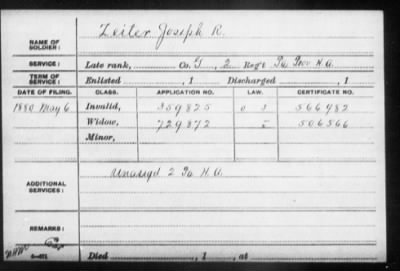 NAME OF SOLDIER: Zeiter Joseph R.
SERVICE: Late rank, Co. G, 2 Reg't Pa. Prov. H.A.
TERM OF SERVICE: Enlisted , 1 Discharged , 1
DATE OF FILING. CLASS. APPLICATION NO. LAW. CERTIFICATE NO.
1880 May 6 Invalid, 359825 566982
Widow, 729872 506566
Minor,
ADDITIONAL SERVICES: Unasigd 2 Pa H.A.
REMARKS:
Died , 1 , at